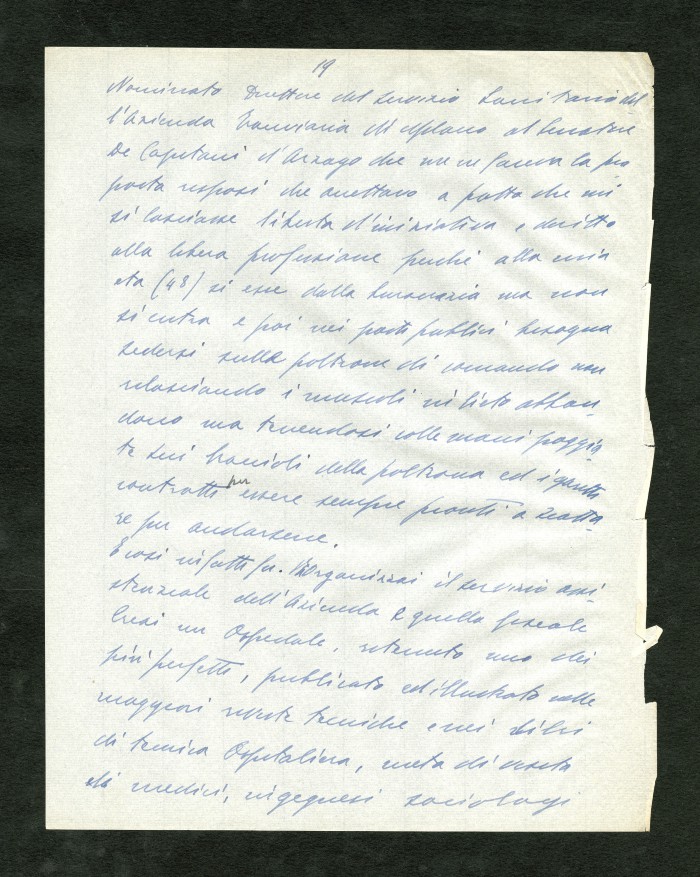 19
Nominato Direttore del servizio Sanitario del
l'Azienda Tranviaria di Milano al Senatore
De Capitani d'Arzago che me ne faceva la pro
posta risposi che accettavo a patto che mi
si lasciasse libertà d'iniziativa e diritto
alla libera professione perché alla mia
età (48) si esce dalla burocrazia ma non
si entra e poi nei posti publici bisogna
sedersi sulla poltrona di comando non
rilasciando i muscoli in lieto abban-
dono ma tenendosi colle mani poggia
te sui braccioli della poltrona ed i garetti
contratti per essere sempre pronti a scatta
re per andarsene.
E così infatti fu. Riorganizzai il servizio assi-
stenziale dell'Azienda e quello fiscale
Creai un Ospedale, ritenuto uno dei
più perfetti, publicato ed illustrato nelle
maggiori riviste tecniche e nei libri
di tecnica Ospitaliera, meta di visita
di medici, ingegneri sociologi